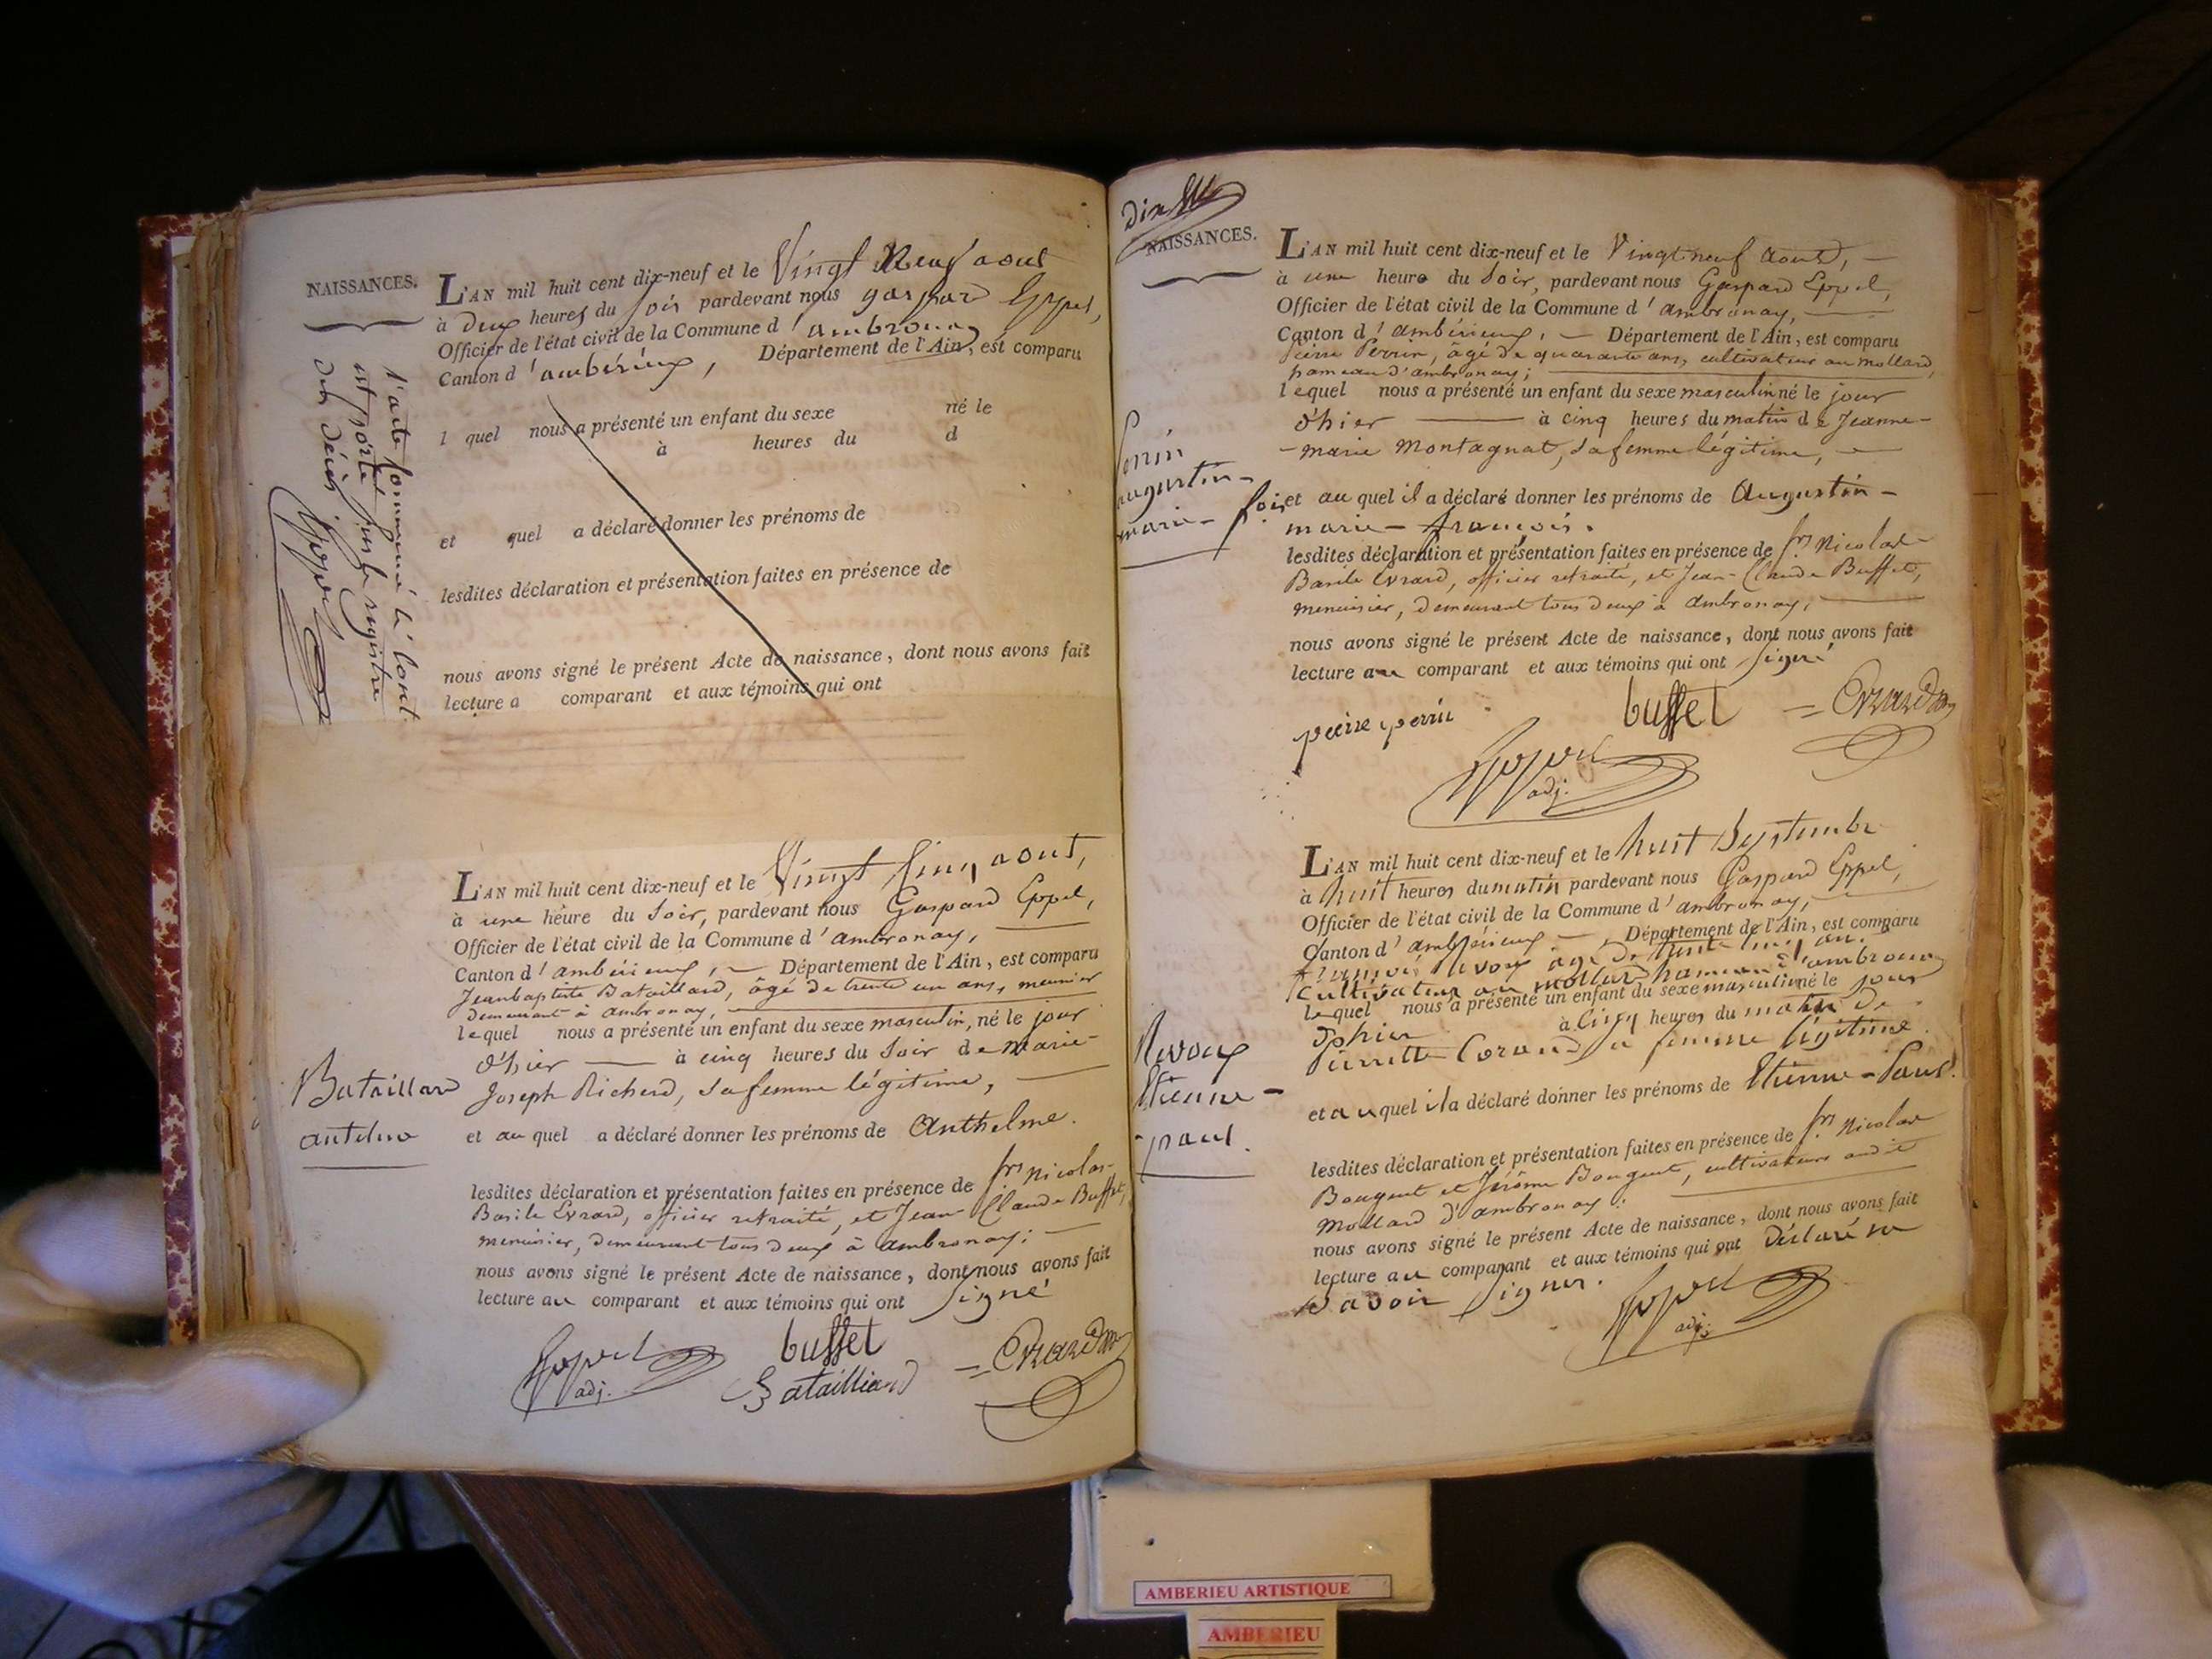 NAISSANCES.
L'AN mil huit cent dix-neuf et le Vingt Neuf aout
à deux heures du soir pardevant nous gaspard Eppel,
Officier de l'état civil de la Commune d'ambronay
Canton d'ambérieux, Département de l'Ain, est comparu
l quel nous a présenté un enfant du sexe né le
à heures du d
et quel a déclaré donner les prénoms de
lesdites déclaration et présentation faites en présence de
nous avons signé le présent Acte de naissance, dont nous avons fait
lecture a comparant et aux témoins qui ont
l'acte commencé ci contre
est porté sur le registre
des décès
Eppel
L'AN mil huit cent dix-neuf et le Vingt Cinq aout,
à une heure du Soir, pardevant nous Gaspard Eppel,
Officier de l'état civil de la Commune d'ambronay,
Canton d'ambérieux, Département de l'Ain, est comparu
Jeanbaptiste Bataillard, âgé de trente un ans, meunier
demeurant à ambronay,
lequel nous a présenté un enfant du sexe masculin, né le jour
d'hier à cinq heures du Soir de Marie-
Joseph Richerd, sa femme légitime,
Bataillard
antelme
et au quel a déclaré donner les prénoms de Anthelme.
lesdites déclaration et présentation faites en présence de frs Nicolas-
Basile Evrard, officier retraité, et Jean-Claude Buffet,
menuisier, demeurant tous deux à ambronay;
nous avons signé le présent Acte de naissance, dont nous avons fait
lecture au comparant et aux témoins qui ont signé
Eppel buffet Evrard
adj. Batailliard
dix
NAISSANCES.
L'AN mil huit cent dix-neuf et le Vingt neuf Aout,
à une heure du Soir, pardevant nous Gaspard Eppel,
Officier de l'état civil de la Commune d'ambronay,
Canton d'ambérieux, Département de l'Ain, est comparu
Pierre Perrin, âgé de quarante ans, cultivateur au Mollard,
hameau d'ambronay;
lequel nous a présenté un enfant du sexe masculin né le jour
d'hier à cinq heures du matin de Jeanne-
-marie Montagnat, sa femme légitime,
augustin-
marie-
et au quel il a déclaré donner les prénoms de Augustin-
marie-françois.
lesdites déclaration et présentation faites en présence de frs Nicolas-
Basile Evrard, officier retraité, et Jean-Claude Buffet,
menuisier, demeurant tous deux à ambronay,
nous avons signé le présent Acte de naissance, dont nous avons fait
lecture au comparant et aux témoins qui ont signé
pierre perrin buffet Evrard
Eppel
adj.
L'AN mil huit cent dix-neuf et le huit Septembre
à huit heures du matin pardevant nous Gaspard Eppel,
Officier de l'état civil de la Commune d'ambronay,
Canton d'ambérieux, Département de l'Ain, est comparu
françois Revoux âgé de trente cinq ans
Cultivateur au mollard hameau d'ambronay
lequel nous a présenté un enfant du sexe masculin né le jour
d'hier à Cinq heures du matin de
sa femme légitime
Revoux
Etienne-
paul.
et au quel il a déclaré donner les prénoms de Etienne-Paul.
lesdites déclaration et présentation faites en présence de frs Nicolas
Bouquet et Jérôme Bouquet, cultivateurs audit
Mollard d'ambronay:
nous avons signé le présent Acte de naissance, dont nous avons fait
lecture au comparant et aux témoins qui ont Déclaré ne
Savoir Signer.
Eppel
adj:
AMBERIEU ARTISTIQUE
AMBERIEU